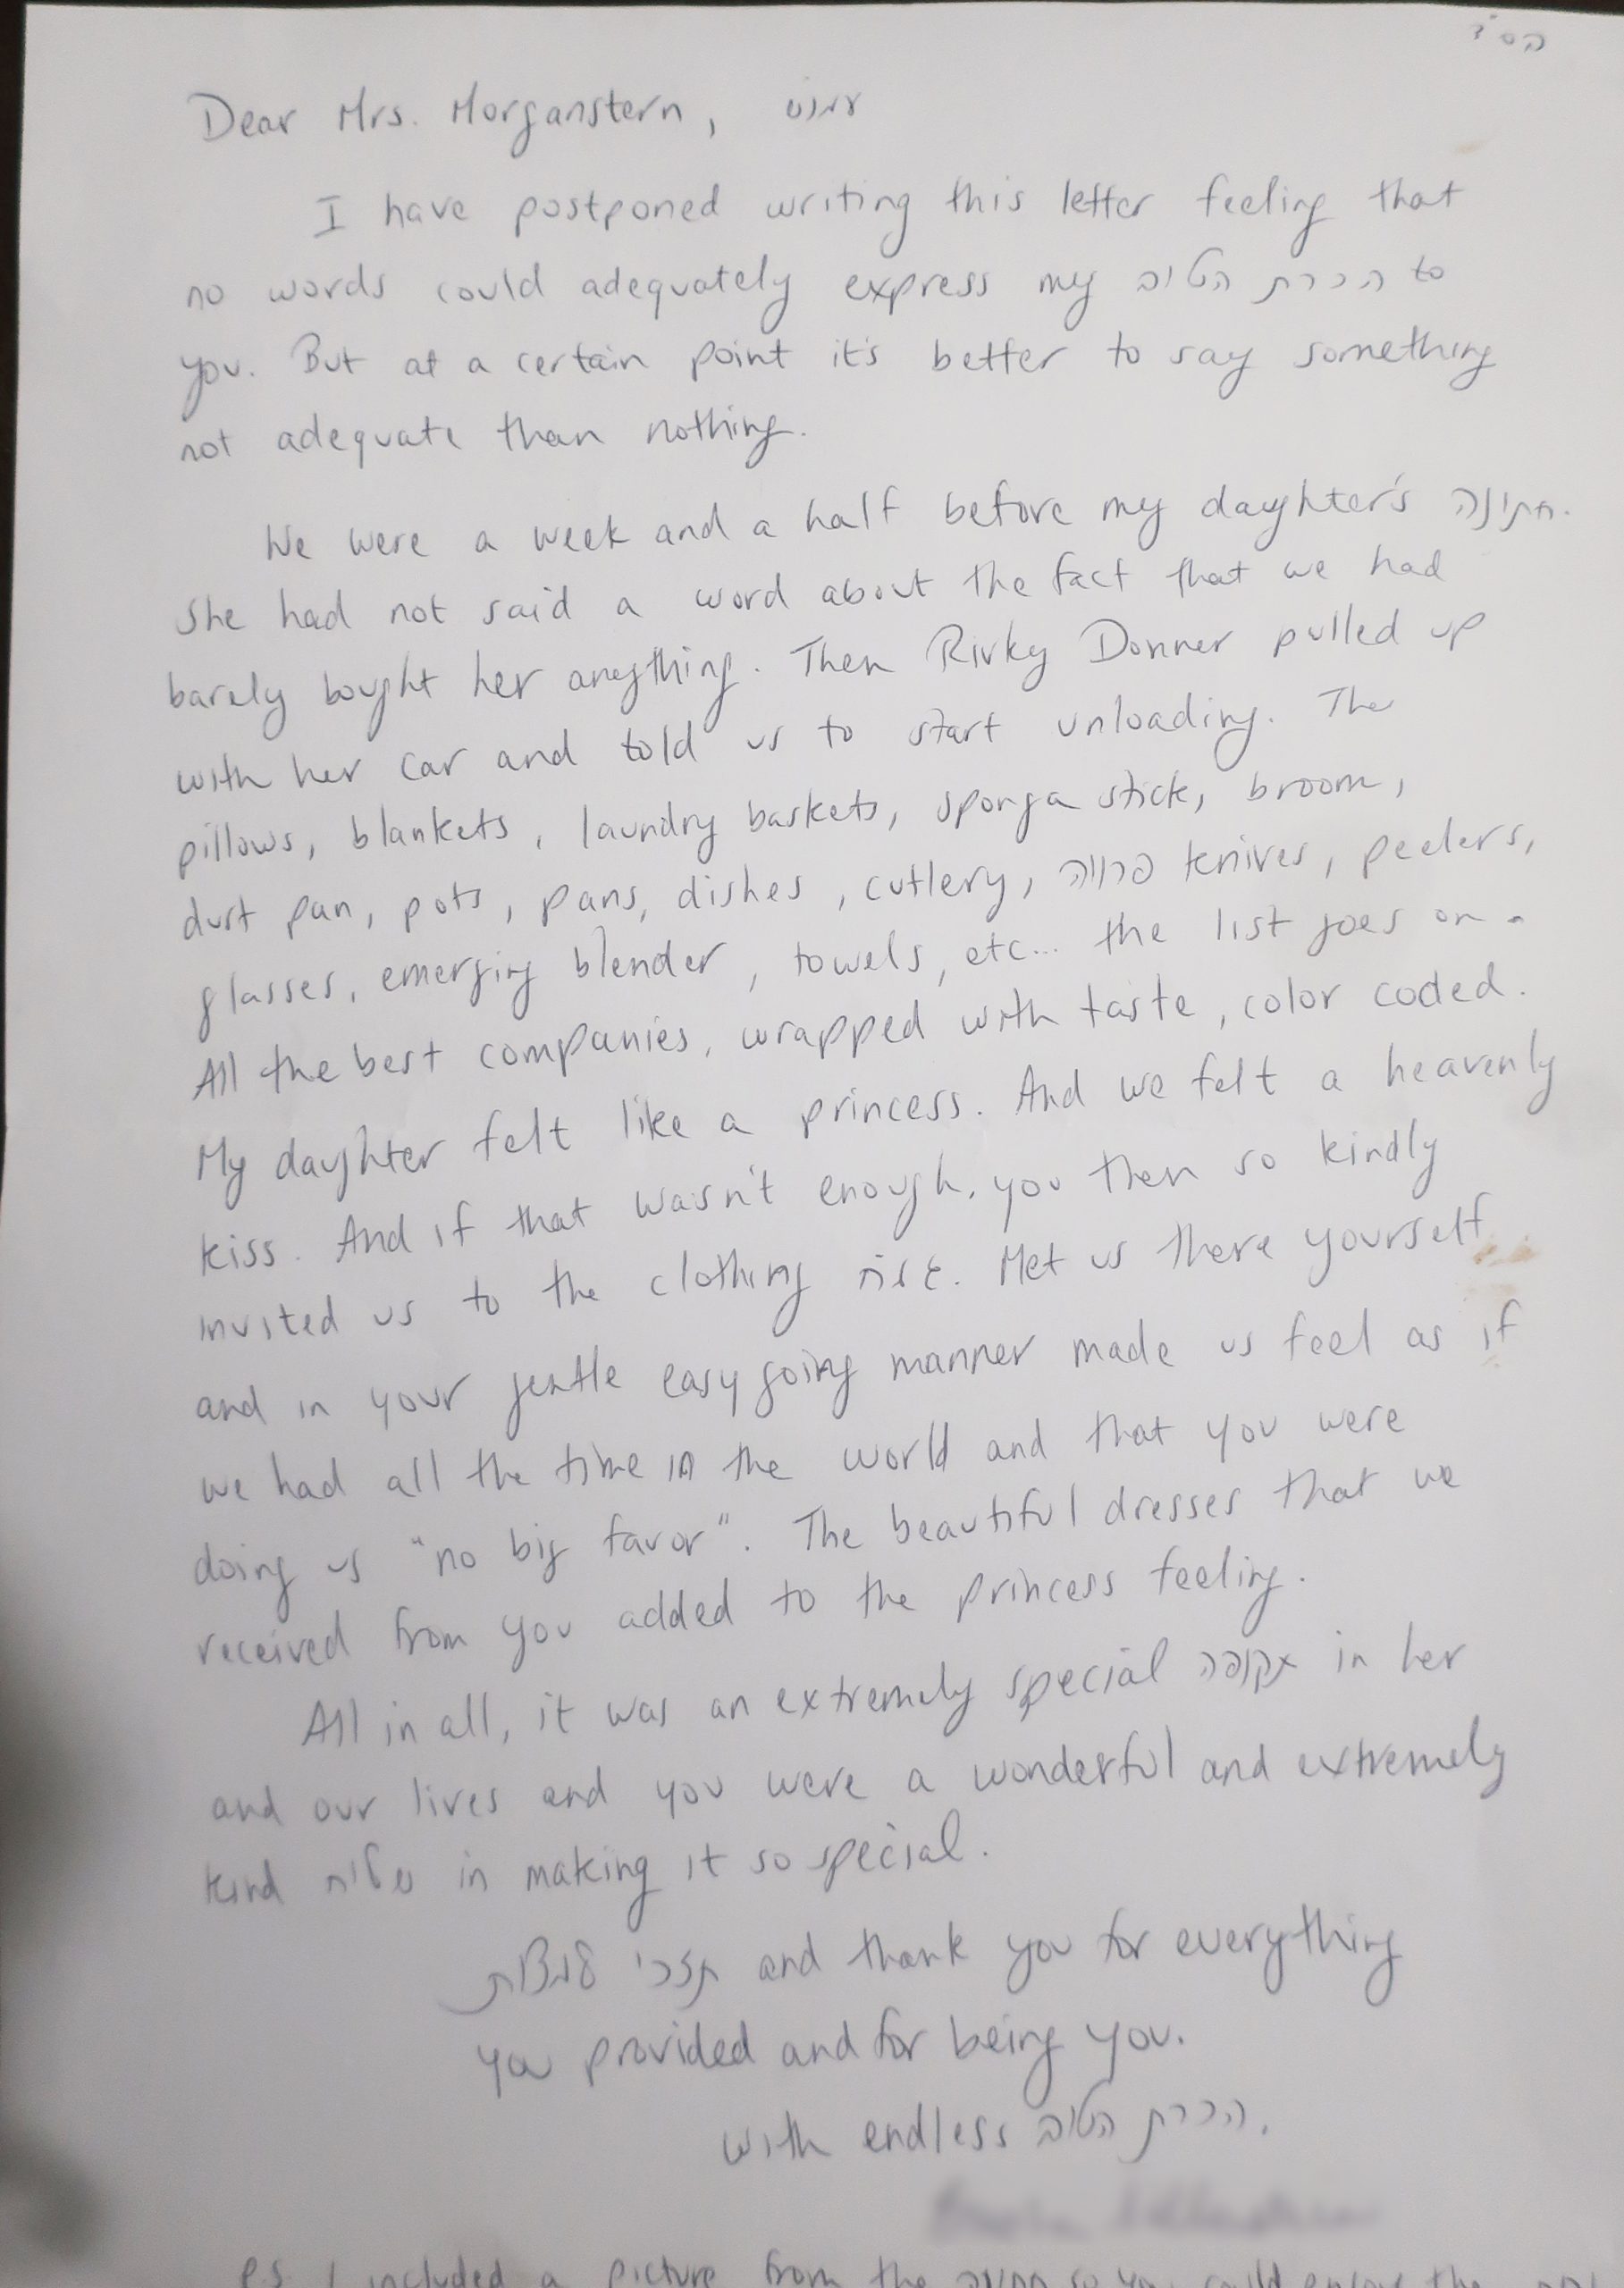 בס"ד
Dear Mrs. Morganstern, עמו"ש
I have postponed writing this letter feeling that
no words could adequately express my הכרת הטוב to
you. But at a certain point it's better to say something
not adequate than nothing.
We were a week and a half before my daughter's חתונה.
She had not said a word about the fact that we had
barely bought her anything. Then Rivky Donner pulled up
with her car and told us to start unloading. The
pillows, blankets, laundry baskets, sponga stick, broom,
dust pan, pots, pans, dishes, cutlery, פרווה knives, peelers,
glasses, emerging blender, towels, etc... the list goes on -
All the best companies, wrapped with taste, color coded.
My daughter felt like a princess. And we felt a heavenly
kiss. And if that wasn't enough, you then so kindly
invited us to the clothing גמ"ח. Met us there yourself
and in your gentle easy going manner made us feel as if
we had all the time in the world and that you were
doing us "no big favor". The beautiful dresses that we
received from you added to the princess feeling.
All in all, it was an extremely special תקופה in her
and our lives and you were a wonderful and extremely
kind שליח in making it so special.
תזכי למצות and thank you for everything
you provided and for being you.
with endless הכרת הטוב.
P.S. I included a picture from the חתונה so you could enjoy the